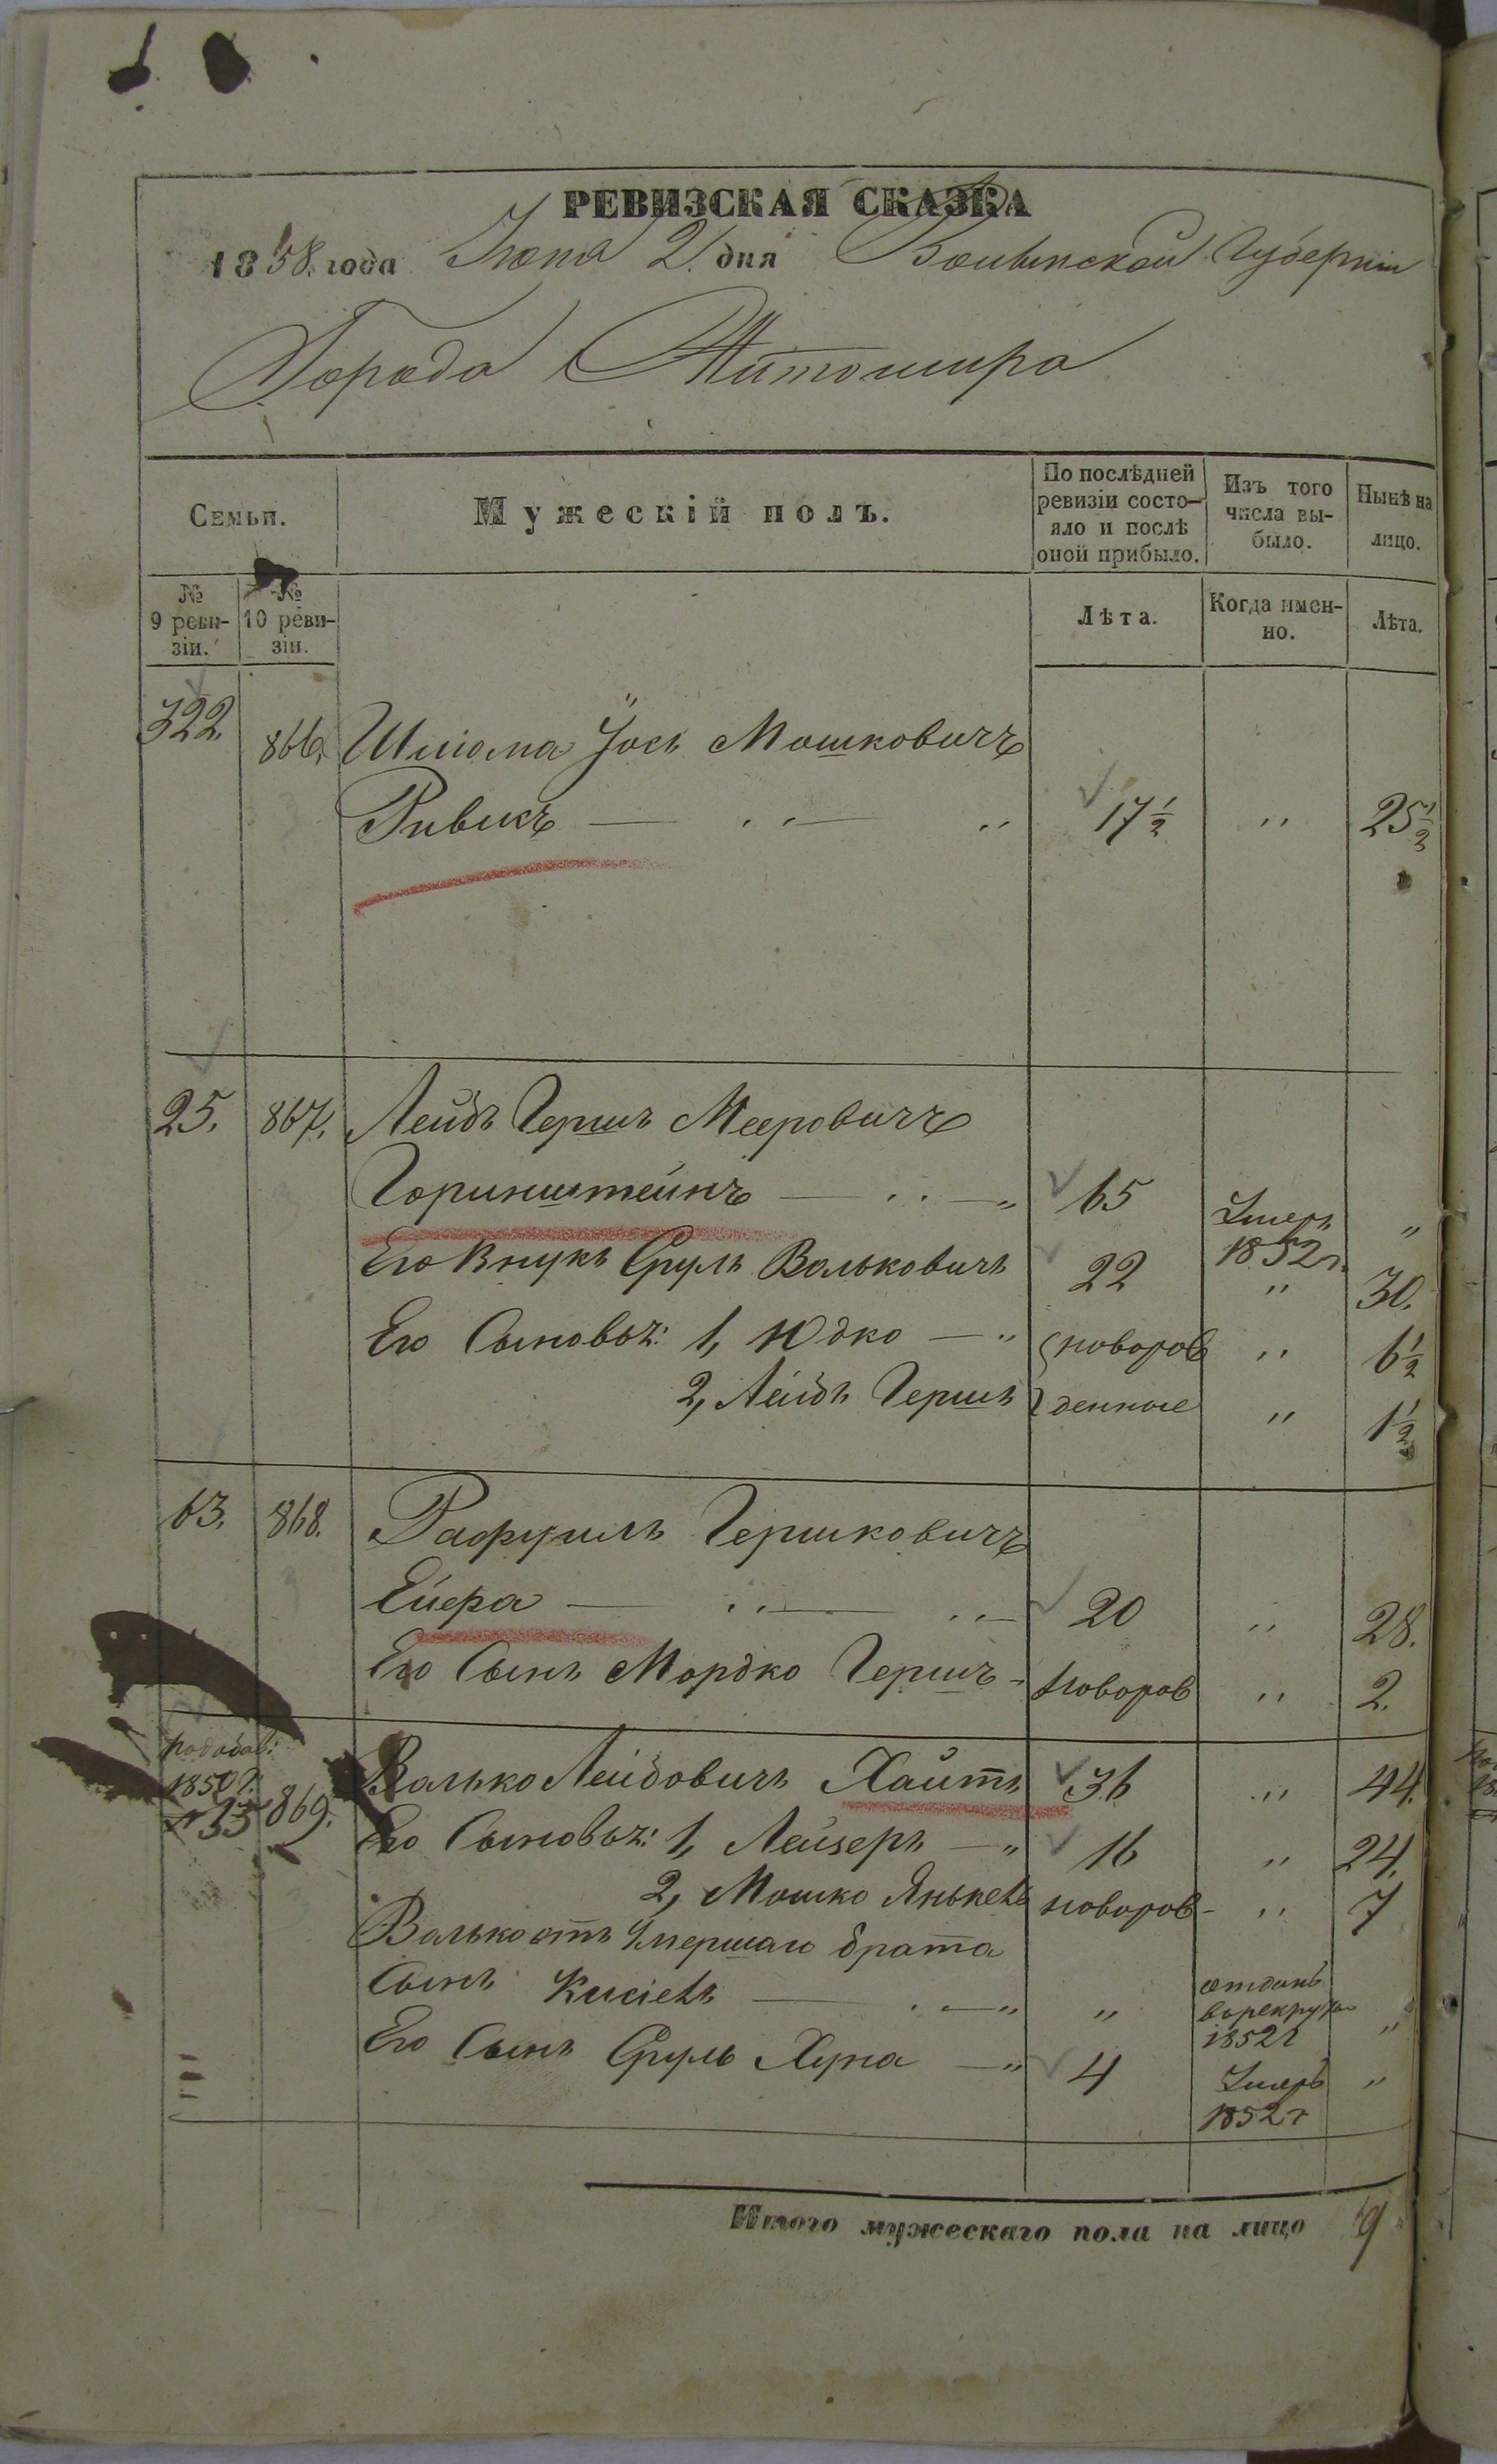 РЕВИЗСКАЯ СКАЗКА
1858. года Іюня 2. дня Волынской Губерніи
Города Житомира
Семьи.
Мужескій полъ.
По послѣдней ревизіи состо-
яло и послѣ
оной прибыло.
Изъ того
числа вы-
было.
Нынѣ на
лицо.
№
9 реви-
зіи.
№
10 реви-
зіи.
Лѣта.
Когда имен-
но.
Лѣта.
322. 866. Шліома Іось Мошковичъ
Ривикъ — „ — „ 17½ „ 25½
25. 867. Лейбъ Гершъ Мееровичъ
Горинштейнъ — „ — „ 65 Умеръ 1852г. „
Его Внукъ Сруль Вольковичъ 22 „ 30.
Его Сыновья: 1, Юдко — „ новорож „ 6½
2, Лейбъ Гершъ денные „ 1½
63. 868. Рафуилъ Гершковичъ
Ейера — „ — „ 20 „ 28.
Его Сынъ Мордко Гершъ - новорож „ 2.
по добав:
1850г.
№ 35 869. Валько Лейбовичъ Хаитъ 36 „ 44.
Его Сыновья: 1, Лейзеръ — „ 16 „ 24.
2, Мошко Янькель новорож- „ 7
Валько отъ Умершаго брата
Сынъ Кисіель — „ — „ „ отданъ
въ рекруты
1852г „
Его Сынъ Сруль Хуна — „ 4 Умеръ
1852г „
Итого мужескаго пола на лицо 9